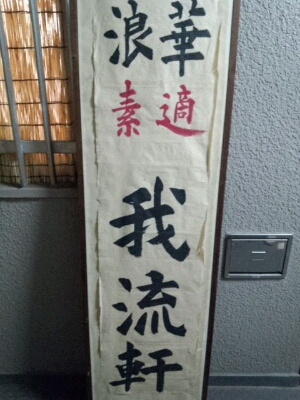 浪華
素適
我流軒